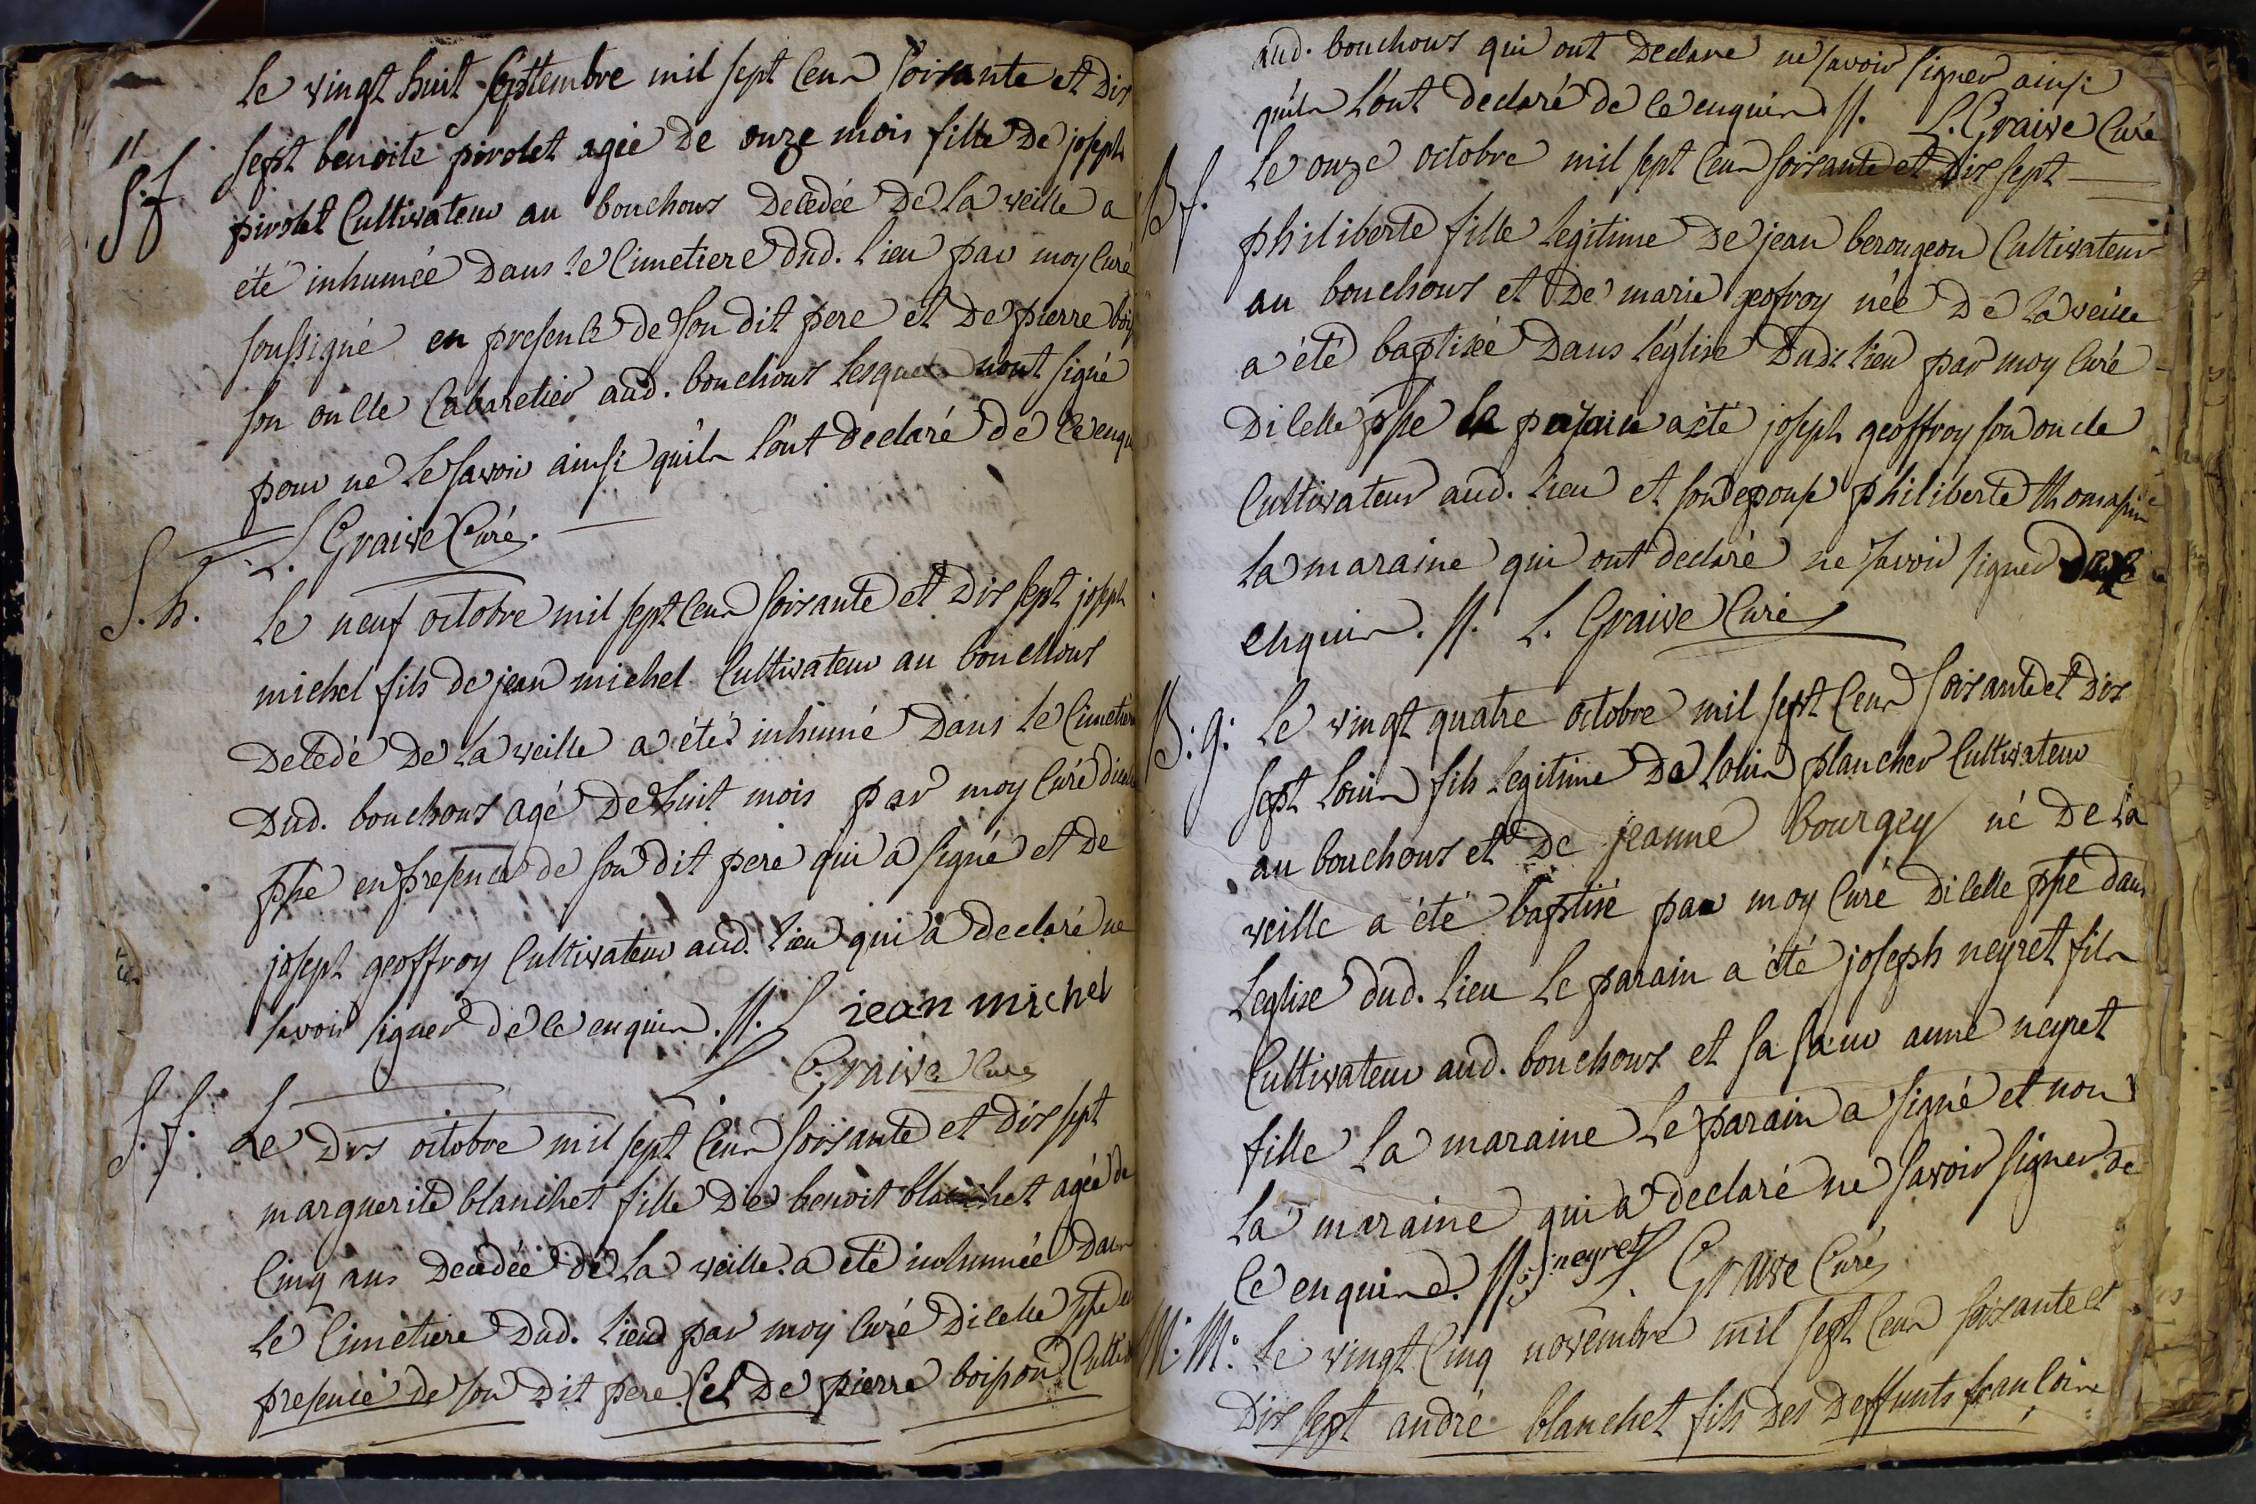 le vingt huit Septembre mil sept Cens soixante et dix
11
S. f
sept benoite pivolet agée de onze mois fille de joseph
pivolet Cultivateur au bouchoux decedée de la veille a
été inhumée dans le Cimetiere dud. lieu par moy Curé
soussigné en presence de son dit pere et de pierre boi
son oncle Cabaretier aud. bouchoux lesquels n'ont signé
pour ne le savoir ainsi qu'ils l'ont declaré de ce enqu
L. Graive Curé.
S. h.
le neuf octobre mil sept Cens soixante et dix sept joseph
michel fils de jean michel Cultivateur au bouchoux
decedé de la veille a été inhumé dans le Cimetier
dud. bouchoux agé de huit mois par moy Curé dicel
ppe en presence de son dit pere qui a signé et de
joseph geoffroy Cultivateur aud. lieu qui a declaré ne
savoir signer de ce enquis. //. jean michel
L. Graive Curé
S. f.
Le dix octobre mil sept Cens soixante et dix sept
marguerite blanchet fille de benoit blanchet agée de
Cinq ans decedée de la veille a été inhumée dans
le Cimetiere dud. lieu par moy Curé dicelle ppe en
presence de son dit pere et de pierre boisson Cultiv
aud. bouchoux qui ont declaré ne savoir signer ainsi
qu'ils l'ont declaré de ce enquis //. L. Graive Curé
B f.
le onze octobre mil sept Cens soixante et dix sept
philiberte fille legitime de jean berougeon Cultivateur
au bouchoux et de marie geofroy née de la veille
a été baptisée dans l'église dudt lieu par moy Curé
dicelle ppe le parain a été joseph geoffroy son oncle
Cultivateur aud. lieu et son epouse philiberte thomassin
la maraine qui ont declaré ne savoir signer de ce
enquis. //. L. Graive Curé
B: g:
le vingt quatre octobre mil sept Cens soixante et dix
sept louis fils legitime de louis plancher Cultivateur
au bouchoux et de jeanne bourgey né de la
veille a été baptisé par moy Curé dicelle ppe dans
leglise dud. lieu le parain a été joseph neyret fils
Cultivateur aud. bouchoux et sa sœur anne neyret
fille la maraine le parain a signé et non
la maraine qui a declaré ne savoir signer de
ce enquise. //. neyret L. Graive Curé
M: M:
le vingt Cinq novembre mil sept Cens soixante et
dix sept andré blanchet fils des deffunts francois